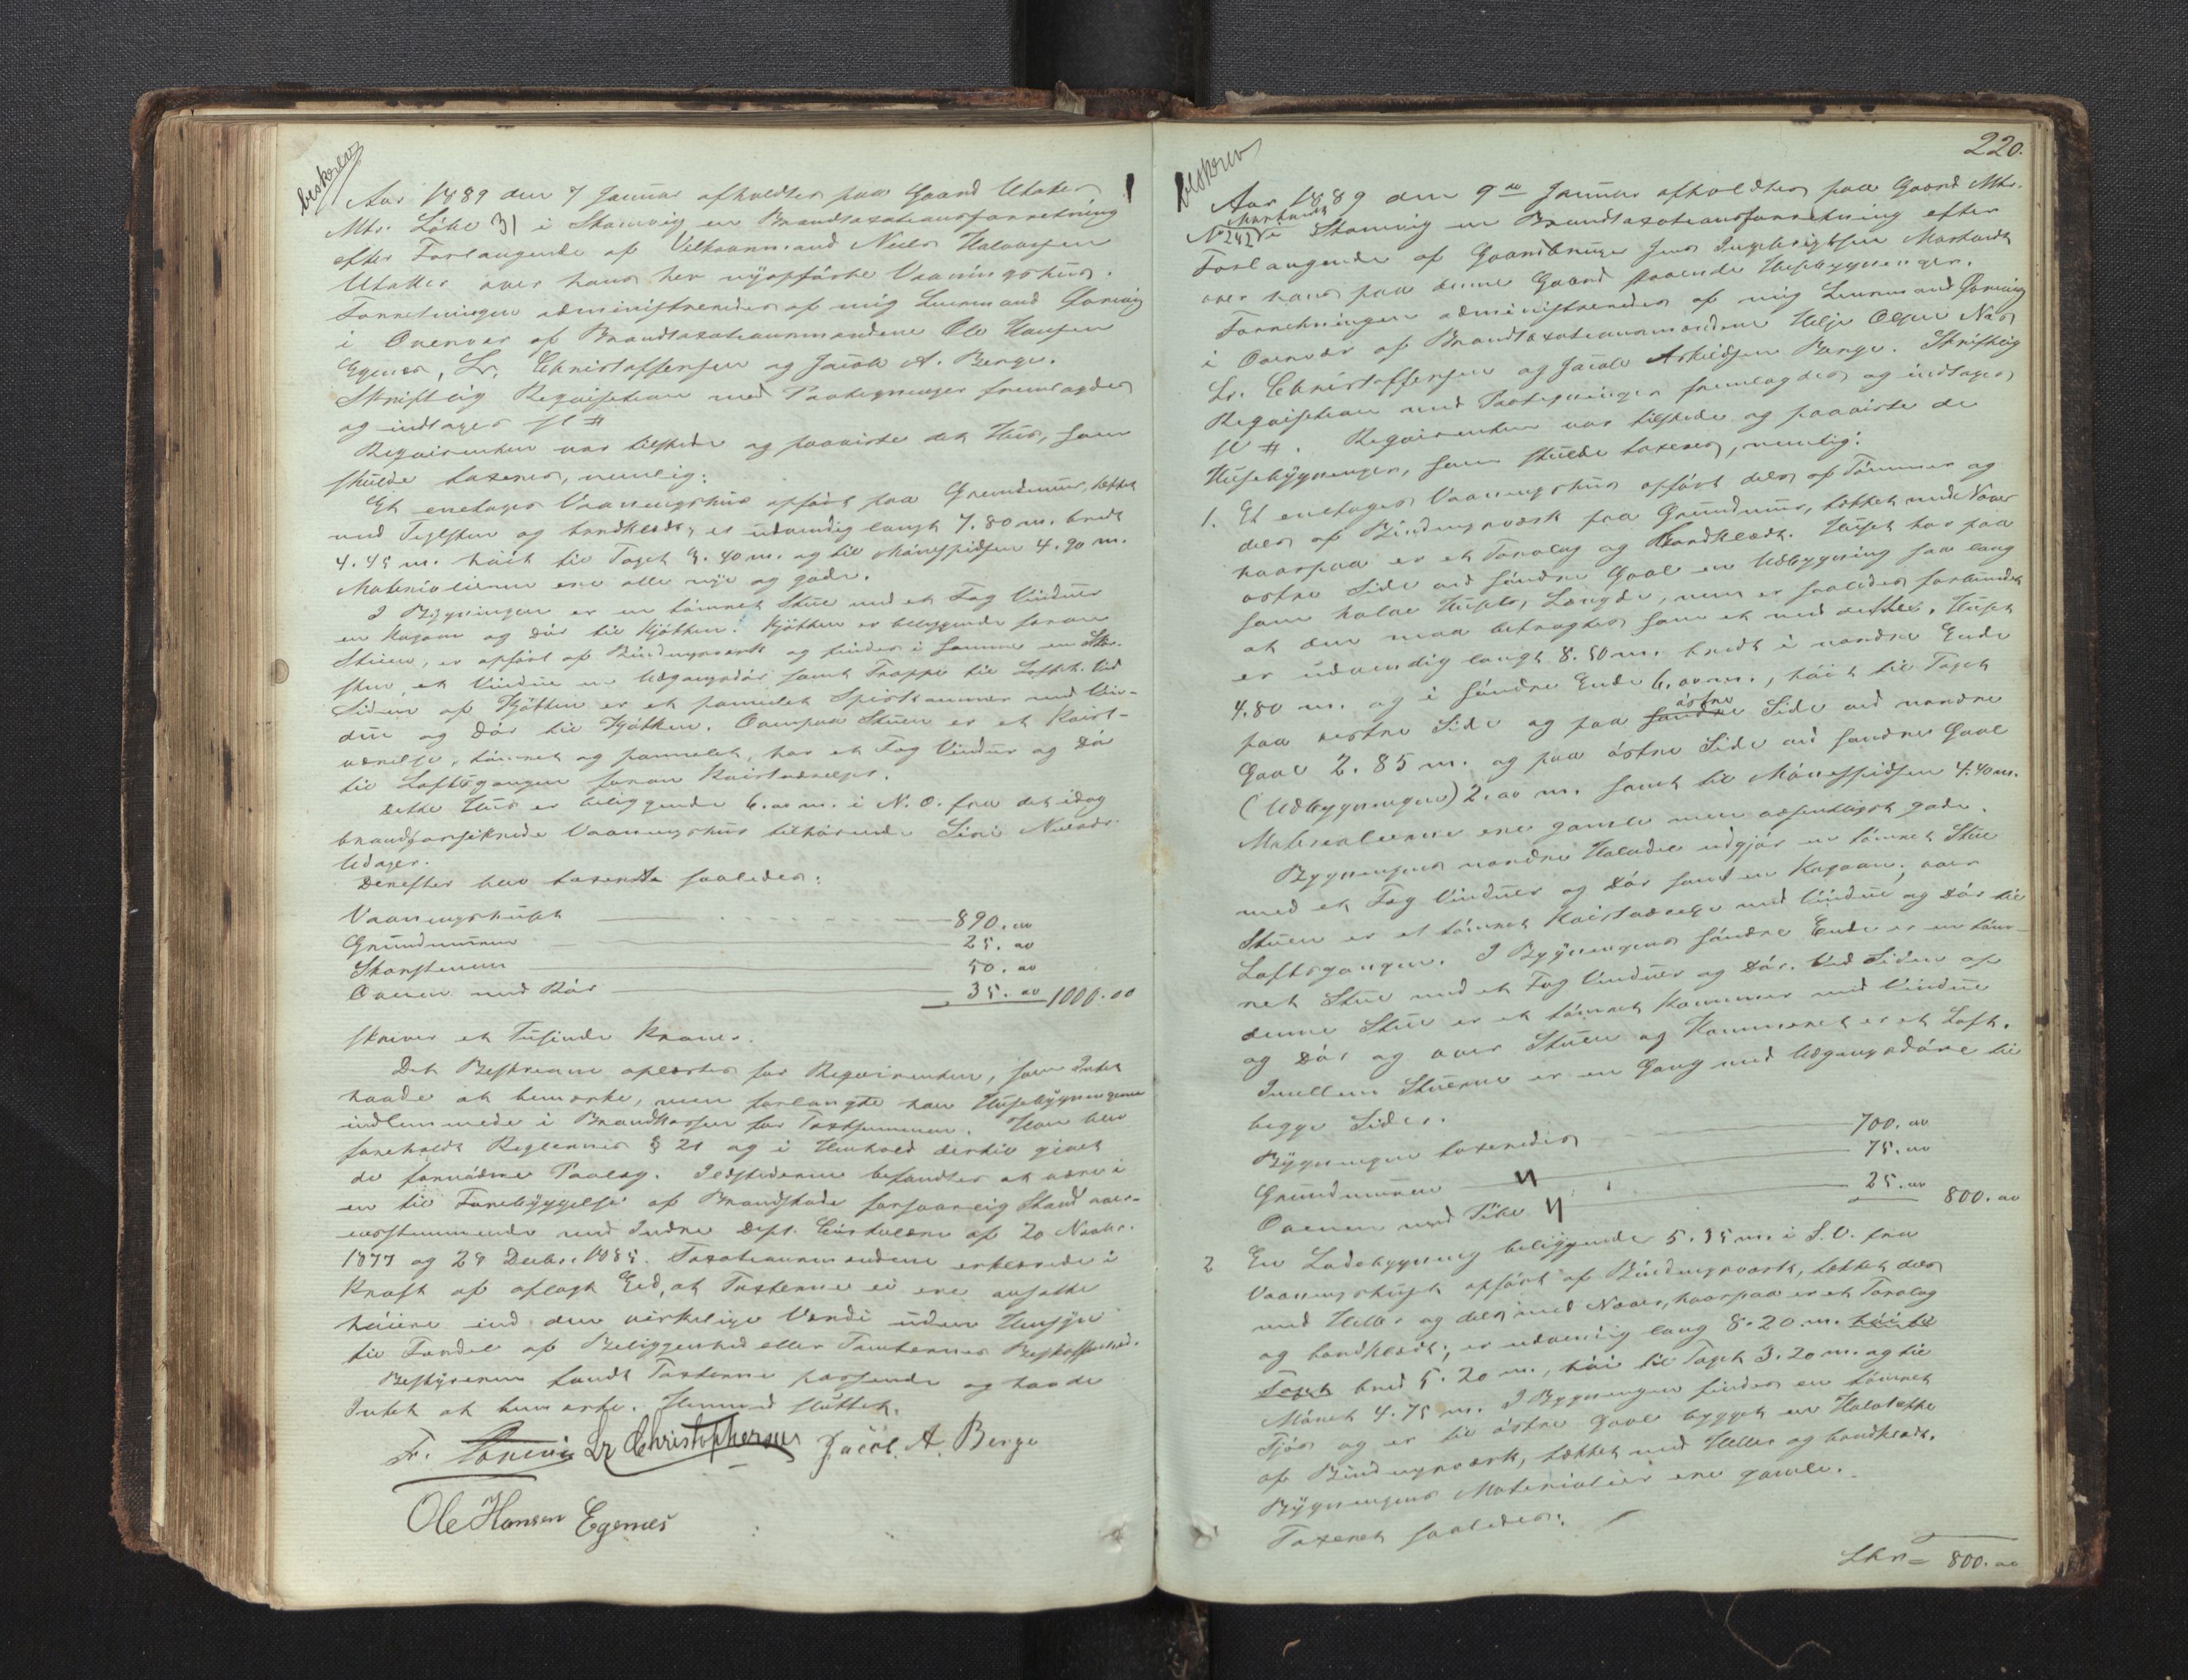 beskrev
Aar 1889 den 7 Januar afholdtes paa Gaard Utaker
Mtr. Løbe 31 i Skaanevig en Brandtaxationsforretning
efter Forlangende af Velhavnmand Neels Halvorsen
Utaker over hans her nyopførte Vaaningshus.
Forretningen administreredes af mig Lensmand
i Overvær af Brandtaxationsmændene Ole Hansen
Egenes, Lr. Christoffersen og Jacob A. Berge.
Skriftlig Reqvisition med Paategninger fremlagdes
og indtages sl #
Reqvirenten var tilstede og paaviste det Hus, som
skulde taxeres, nemlig:
Et enetages Vaaningshus opført paa Grundmur, tekket
med Teglsten og bordklædt, er udvendig langt 7.80 m. bredt
4.45 m. høit til Taget 3.40 m. og til Mønespidsen 4.90 m.
Materialierne ere alle nye og gode.
I Bygningen er en tømret Stue med et Fag Vinduer
en Kogeovn og Dør til Kjøkken. Kjøkken er beliggende foran
Stuen, er opført af Bindingsverk og findes i samme en Skor-
sten, et Vindue en Udgangsdør samt Trappe til Loftet. Ved
Siden af Kjøkken er et panelet Spiskammer med Vin-
due og Dør til Kjøkken. Ovenpaa Stuen er et Kvist-
værelse, tømret og pannelet, har et Fag Vinduer og Dør
til Loftsgangen foran Kvistværelset.
Dette Hus er beliggende 6.00 m. i N.O. fra det idag
brandforsikrede Vaaningshus tilhørende Sini Neelsdr.
Udager.
Derefter blev taxerede saaledes:
Vaaningshuset 890.00
Grundmuren 25.00
Skorstenen 50.00
Ovnen med Rør 35.00 1000.00
skriver et Tusinde Kroner.
Det Beskrevne oplæstes for Reqvirenten, som Intet
havde at bemærke, men forlangte han Husebygningerne
indlemmede i Brandkassen for Taxtsummen. Han blev
foreholdt Reglernes § 21 og i Henhold dertil givet
de fornødne Paalæg. Ildstederne befandtes at være i
en til Forebyggelse af Brandskade forsvarlig Stand over-
ensstemmende med Indre Dept. Cirkulære af 20 Novbr.
1877 og 29 Decbr. 1885. Taxationsmændene erklærede i
Kraft af aflagt Eed, at Taxterne ei ere ansatte
høiere end den virkelige Værdi uden Hensyn
til Fordel af Beliggenhed eller Tomternes Beskaffenhed.
Bestyreren fandt Taxterne passende og havde
Intet at bemærke. Hermed sluttet.
Lr Christophersen Jacob A. Berge
Ole Hansen Egenæs
220.
beskrev
Aar 1889 den 9de Januar afholdtes paa Gaard Mtr.
No 242 Markhus i Skaanevig en Brandtaxationsforretning efter
Forlangende af Gaardbruger Jens Ingebrigtsen Markhus
over hans paa denne Gaard staaende Husebygninger.
Forretningen administreredes af mig Lensmand
i Overvær af Brandtaxationsmændene Helje Olsen Næs
Lr. Christoffersen og Jacob Askildsen Berge. Skriftlig
Reqvisition med Paategninger fremlagdes og indtages
sl #. Reqvirenten var tilstede og paaviste de
Husebygninger, som skulde taxeres, nemlig:
1. Et enetages Vaaningshus opført dels af Tømmer og
dels af Bindingsværk paa Grundmur, tekket med Næver
hvorpaa er et Torvlag og Bordklædt. Huset har paa
østre Side ved søndre Gavl en Udbygning saa lang
som halve Husets Længde, men er saaledes forbundet
at den maa betragtes som et med dette. Huset
er udvendig langt 8.50 m. bredt i nordre Ende
4.80 m. og i søndre Ende 6.00 m., høit til Taget
paa vestre Side og paa søndre østre Side ved nordre
Gavl 2.85 m. og paa østre Side ved søndre Gavl
(Udbygningen) 2.00 m. samt til Mønespidsen 4.40 m.
Materialierne ere gamle men væsentligst gode.
Bygningens nordre Halvdel udgjør en tømret Stue
med et Fag Vinduer og Dør samt en Kogeovn; over
Stuen er et tømret Kvistværelse med Vindue og Dør til
Loftsgangen. I Bygningens søndre Ende er en tøm-
ret Stue med et Fag Vinduer og Dør. Ved Siden af
denne Stue er et tømret Kammer med Vindue
og Dør og over Stuen og Kammeret er et Loft.
Imellem Stuerne er en Gang med Udgangsdøre til
begge Sider.
Bygningen taxeredes 700.00
Grundmuren " 75.00
Ovnen med Pibe " 25.00 800.00
2 En Ladebygning beliggende 5.35 m. i S.V. fra
Vaaningshuset opført af Bindingsværk, tekket dels
med Heller og dels med Næver, hvorpaa er et Torvlag
og bordklædt; er udvendig lang 8.20 m. høi til
Taget bred 5.20 m., høi til Taget 3.20 m. og til
Mønet 4.75 m. I Bygningen findes en tømret
Fjøs og er til østre Gavl bygget en Halvtække
af Bindingsværk, tækket med Heller og bordklædt.
Bygningens Materialier ere gamle.
Taxeret saaledes:
Lhn = 800.00